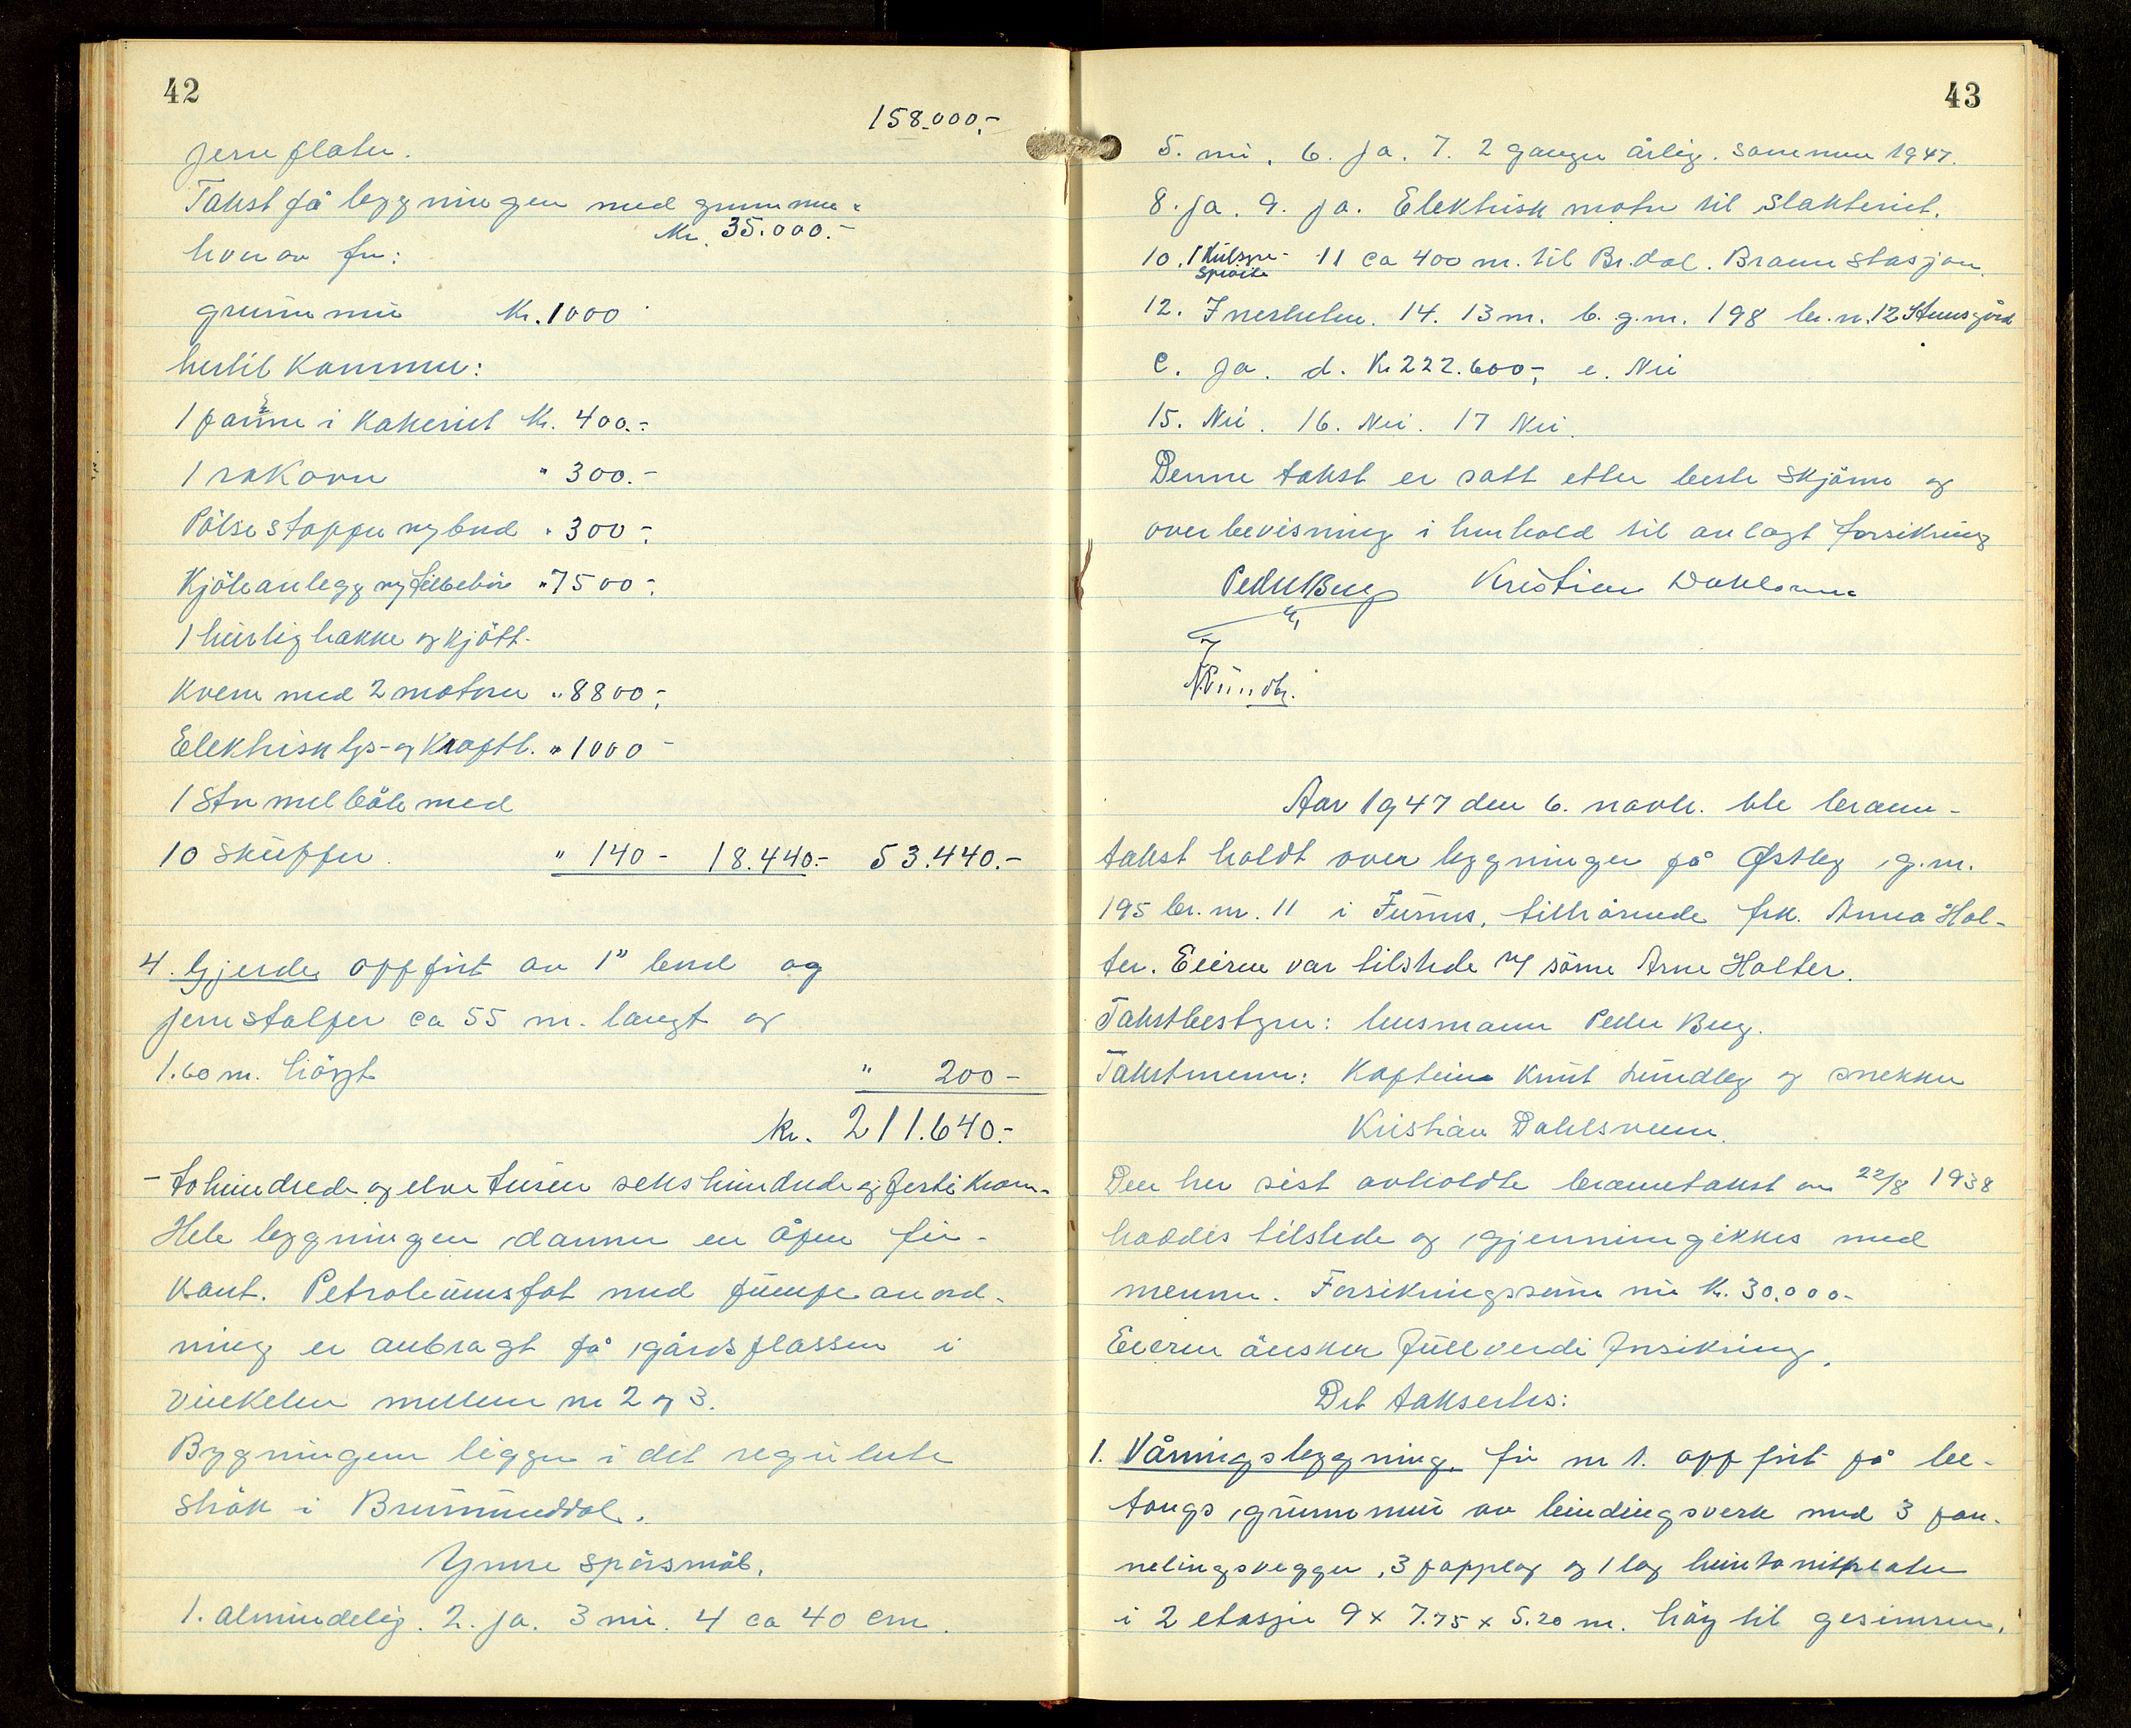 42
158.000,-
jernplater.
Takst på bygningen med grunnmur
Kr. 35.000.-
hvorav for:
grunnmur Kr. 1000
hertil kommer:
1 panne i kokeriet Kr. 400.-
1 røkovn " 300.-
Pölsestopper m/bord " 300-
Kjöleanlegg m/tilbehör " 7500-
1 hurtighakke og kjött-
kvern med 2 motorer " 8800,-
Elektrisk lys- og kraftl. " 1000-
1 stor melböle med
10 skuffer. " 140- 18.440.- 53.440.-
4. Gjerde, oppfört av 1" bord og
jernstolper ca 55 m. langt og
1.60 m. höigt " 200-
kr. 211.640.-
- tohundrede og elve tusen sekshundrede og förti kroner-
Hele bygningen danner en åpen fir-
kant. Petroleumsfat med pumpeanord-
ning er anbragt på gårdsplassen i
vinkelen mellem nr 2 og 3.
Bygningen ligger i det regulerte
strök i Brumunddal.
Ymse spörsmål.
1. almindelig. 2. ja. 3 nei. 4 ca 40 cm.
43
5. nei. 6. ja. 7. 2 ganger årlig. sommeren 1947.
8. ja. 9. ja. Elektrisk motor til slakteriet.
10. 1 Kulsyre-
sprøite
11 ca 400 m. til Br.dal. Brannstasjon.
12. Ingenhelm. 14. 13 m. b. g.nr. 198 br.n. 12 Huusgård
c. ja. d. Kr 222.600,- e. Nei
15. Nei. 16. Nei. 17 Nei.
Denne takst er satt etter beste skjönn og
overbevisning i henhold til avlagt forsikring
Peder Berg Kristian Dahlsveen
Aar 1947 den 6. novbr. ble brann-
takst holdt over bygninger på Østby, g.nr.
195 br.nr. 11 i Furnes, tilhörende frk. Anna Hol-
ter. Eieren var tilstede v/ sönn Arne Holter.
Takstbestyrer: lensmann Peder Berg.
Takstmenn: Kaptein Knut Lundby og snekker
Kristian Dahlsveen.
Den her sist avholdte branntakst av 22/8 1938
haddes tilstede og gjennemgikkes med
mennene. Forsikringssum nu kr. 30.000-
Eieren önsker fullverdi forsikring.
Det takseres:
1. Våningsbygning, för nr 1. oppfört på be-
tongs grunnmur av bindingsverk med 3 pan-
nelingsvegger, 3 papplag og 1 lag huntonitplater
i 2 etasjer 9 x 7.75 x 5.20 m. höy til gesimsen,